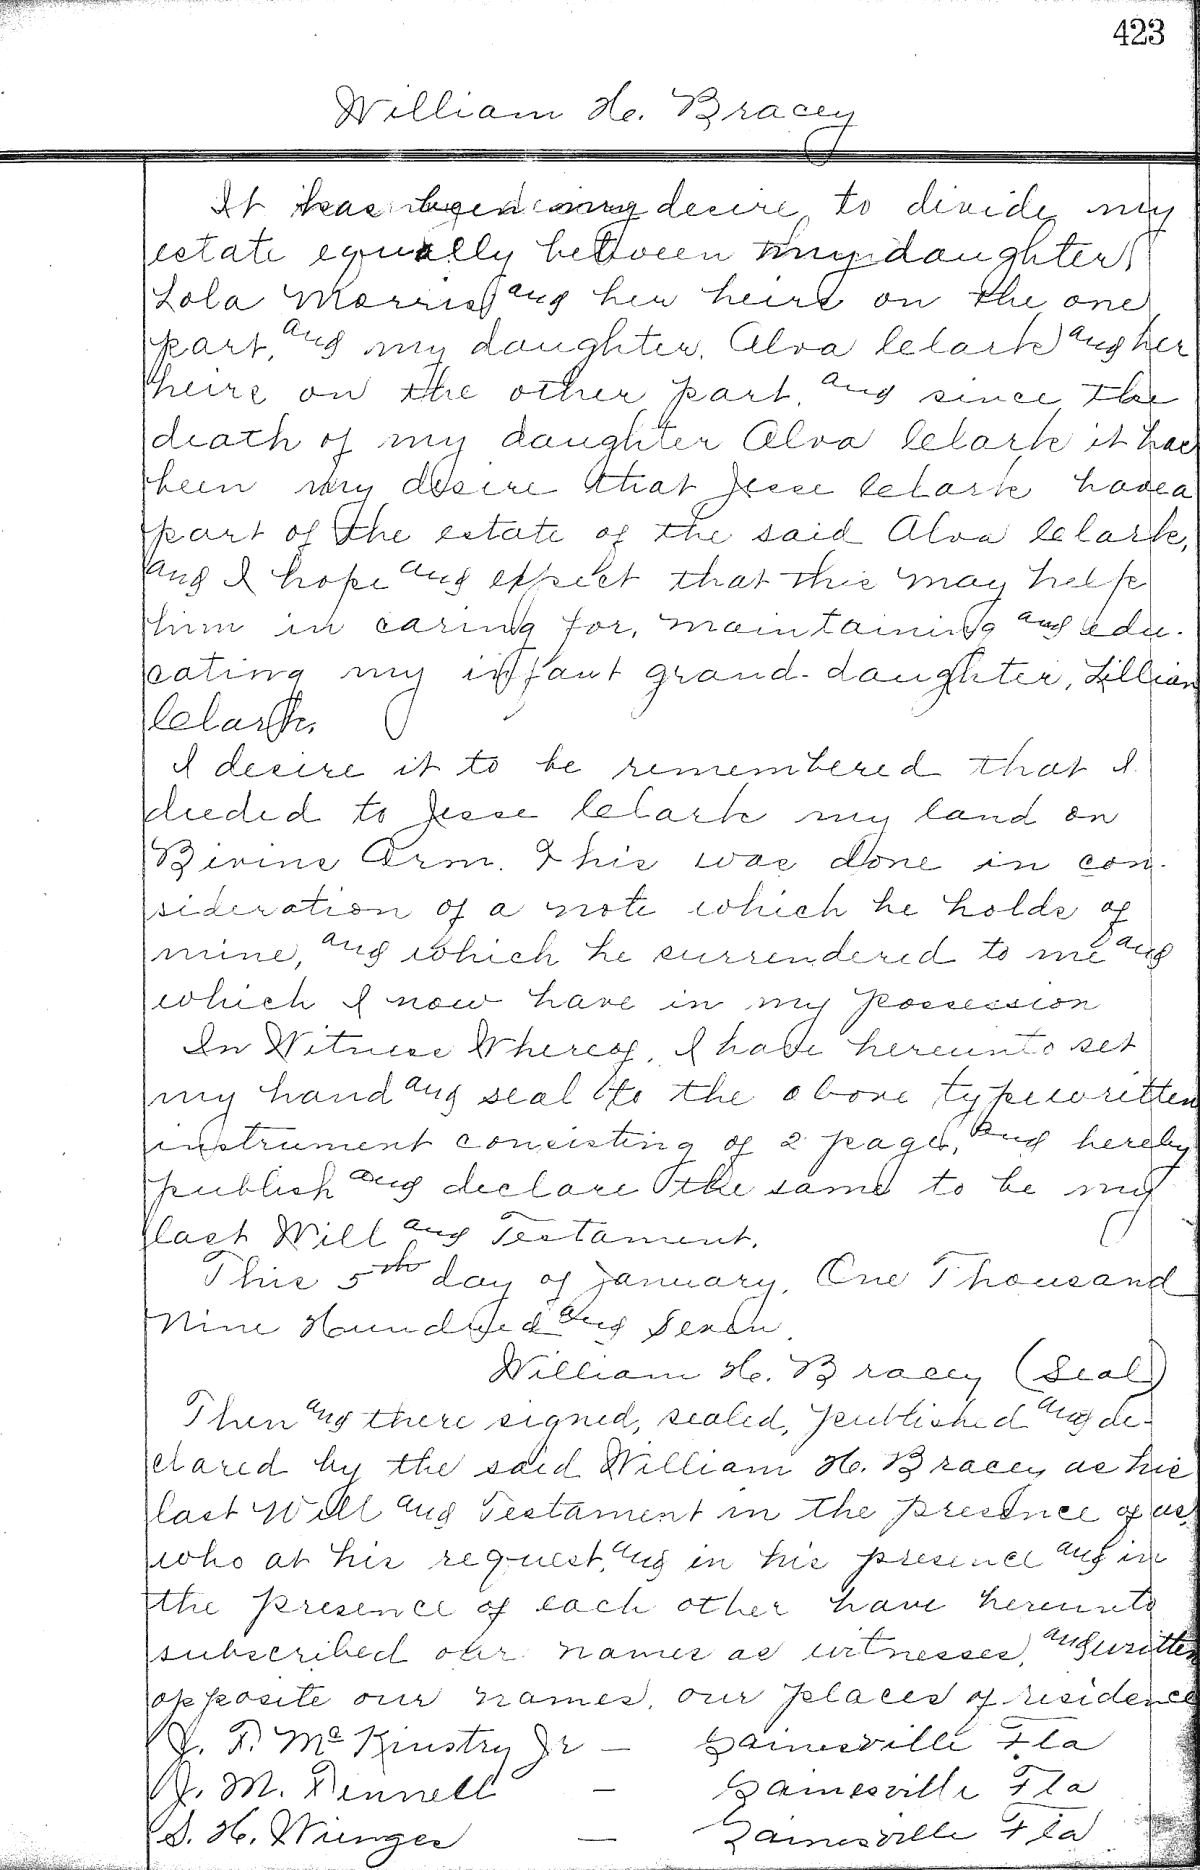 423
William H. Bracey
It has been my desire to divide my
estate equally between my daughter
Lola Morris and her heirs on the one
part, and my daughter, Alva Clark and her
heirs on the other part, and since the
death of my daughter Alva Clark it has
been my desire that Jesse Clark have a
part of the estate of the said Alva Clark,
and I hope and expect that this may help
him in caring for, maintaining and edu-
cating my infant grand-daughter, Lillian
Clark.
I desire it to be remembered that I
deeded to Jesse Clark my land on
Bivins Arm. This was done in con-
sideration of a note which he holds of
mine, and which he surrendered to me and
which I now have in my possession
In Witness Whereof, I have hereunto set
my hand and seal to the above typewritten
instrument consisting of 2 pages, and hereby
publish and declare the same to be my
last Will and Testament.
This 5th day of January, One Thousand
Nine Hundred and Seven.
William H. Bracey (Seal)
Then and there signed, sealed, published and de-
clared by the said William H. Bracey as his
last Will and Testament in the presence of us,
who at his request, and in his presence and in
the presence of each other have hereunto
subscribed our names as witnesses, and written
opposite our names, our places of residence
J. F. McKinstry Jr — Gainesville Fla
J. M. Fennell — Gainesville Fla
S. H. Wienges — Gainesville Fla